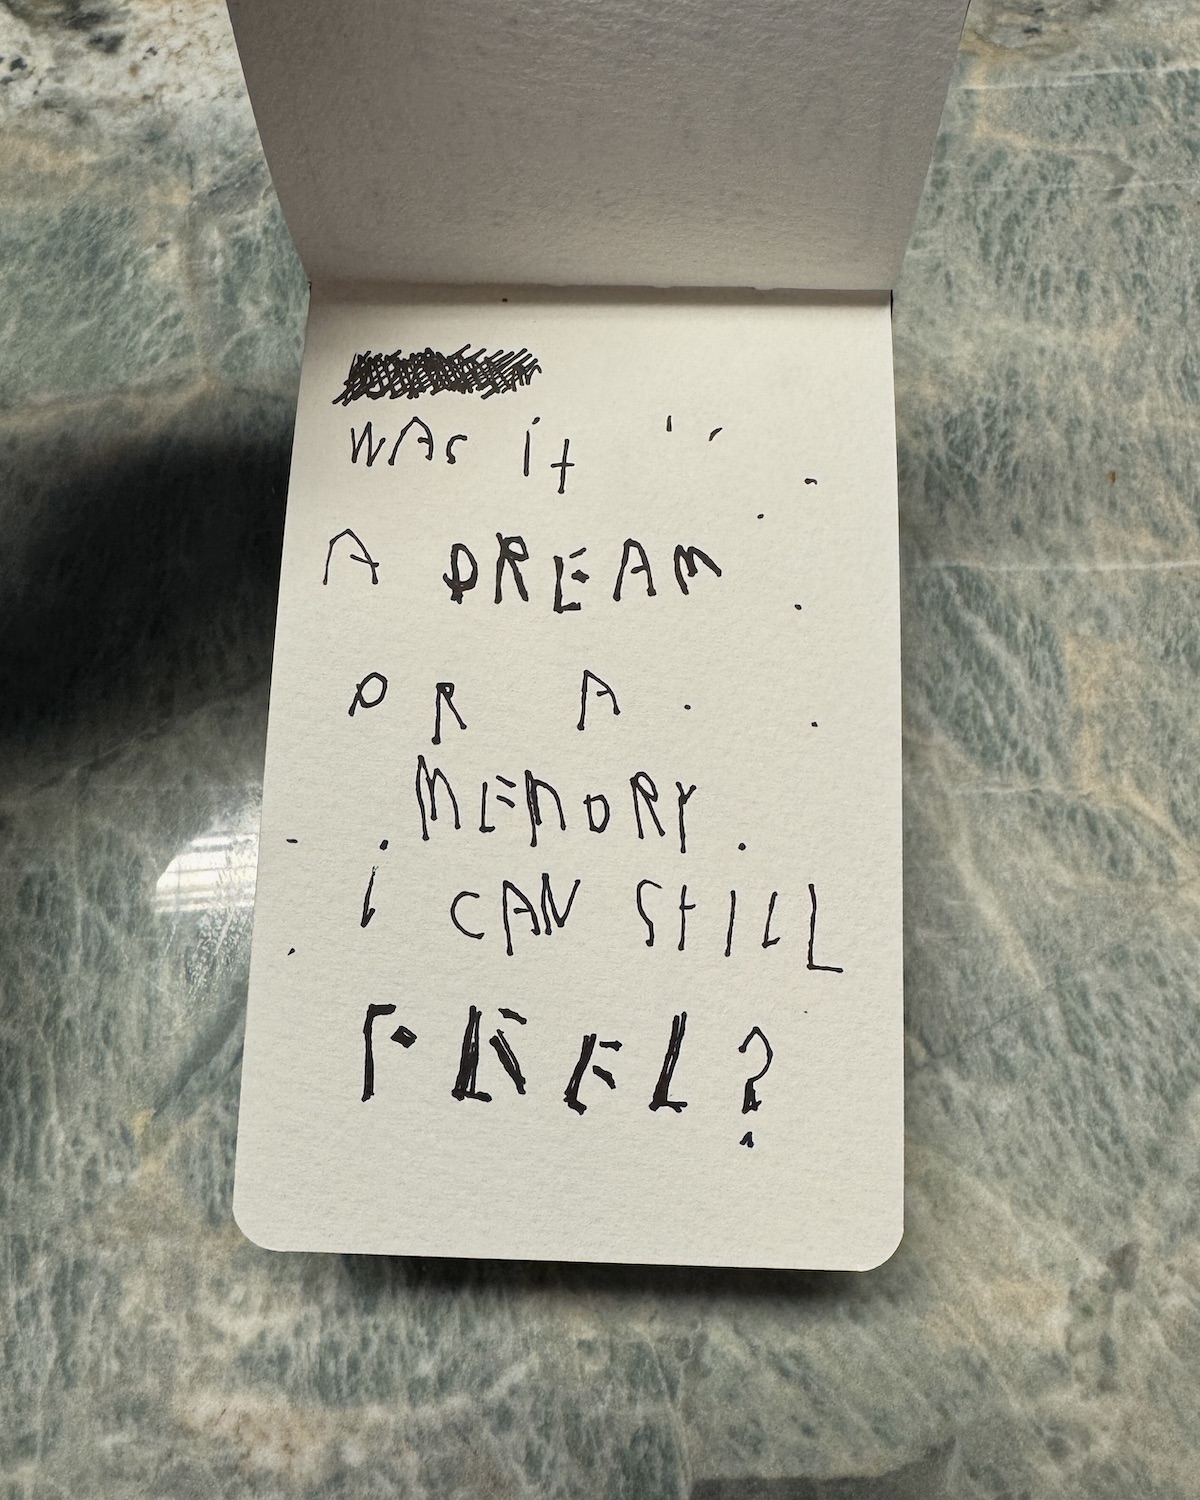 WAS it
A DREAM
OR A
MEMORY
i CAN STILL
FEEL?